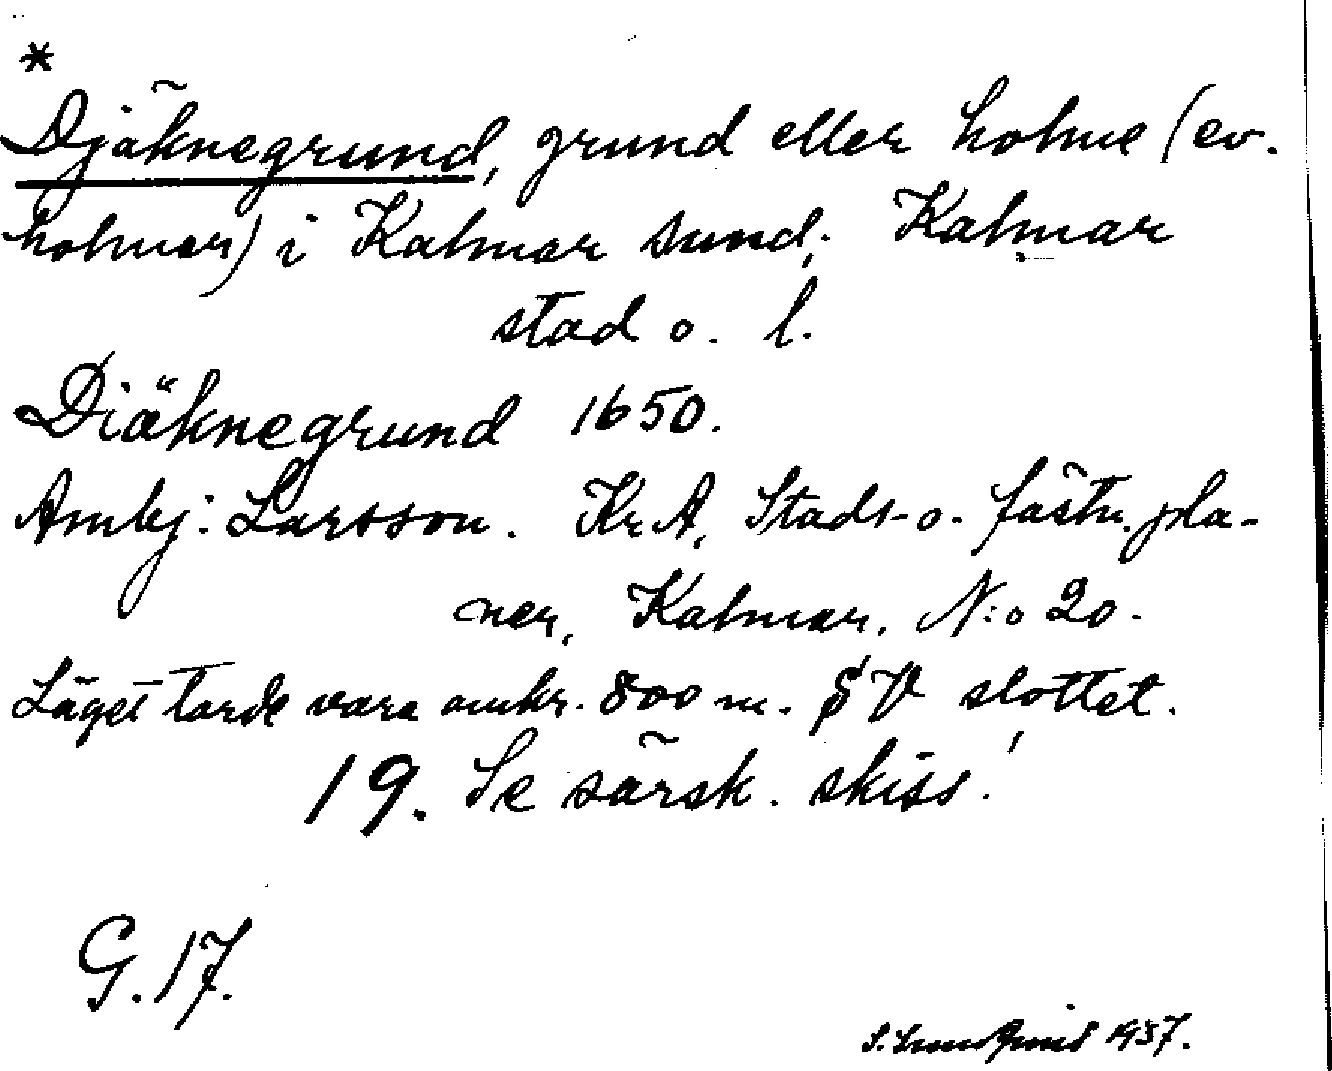 *
Djäknegrund, grund eller holme (ev.
holmar) i Kalmar sund; Kalmar
stad o. l.
Diäknegrund 1650.
Ambj: Larsson. Kr.A, Stads- o. fästn. pla-
ner, Kalmar, N:o 20.
Läget torde vara omkr. 800 m. SV slottet.
19. Se särsk. skiss!
G. 17.
S. Lundquist 1937.